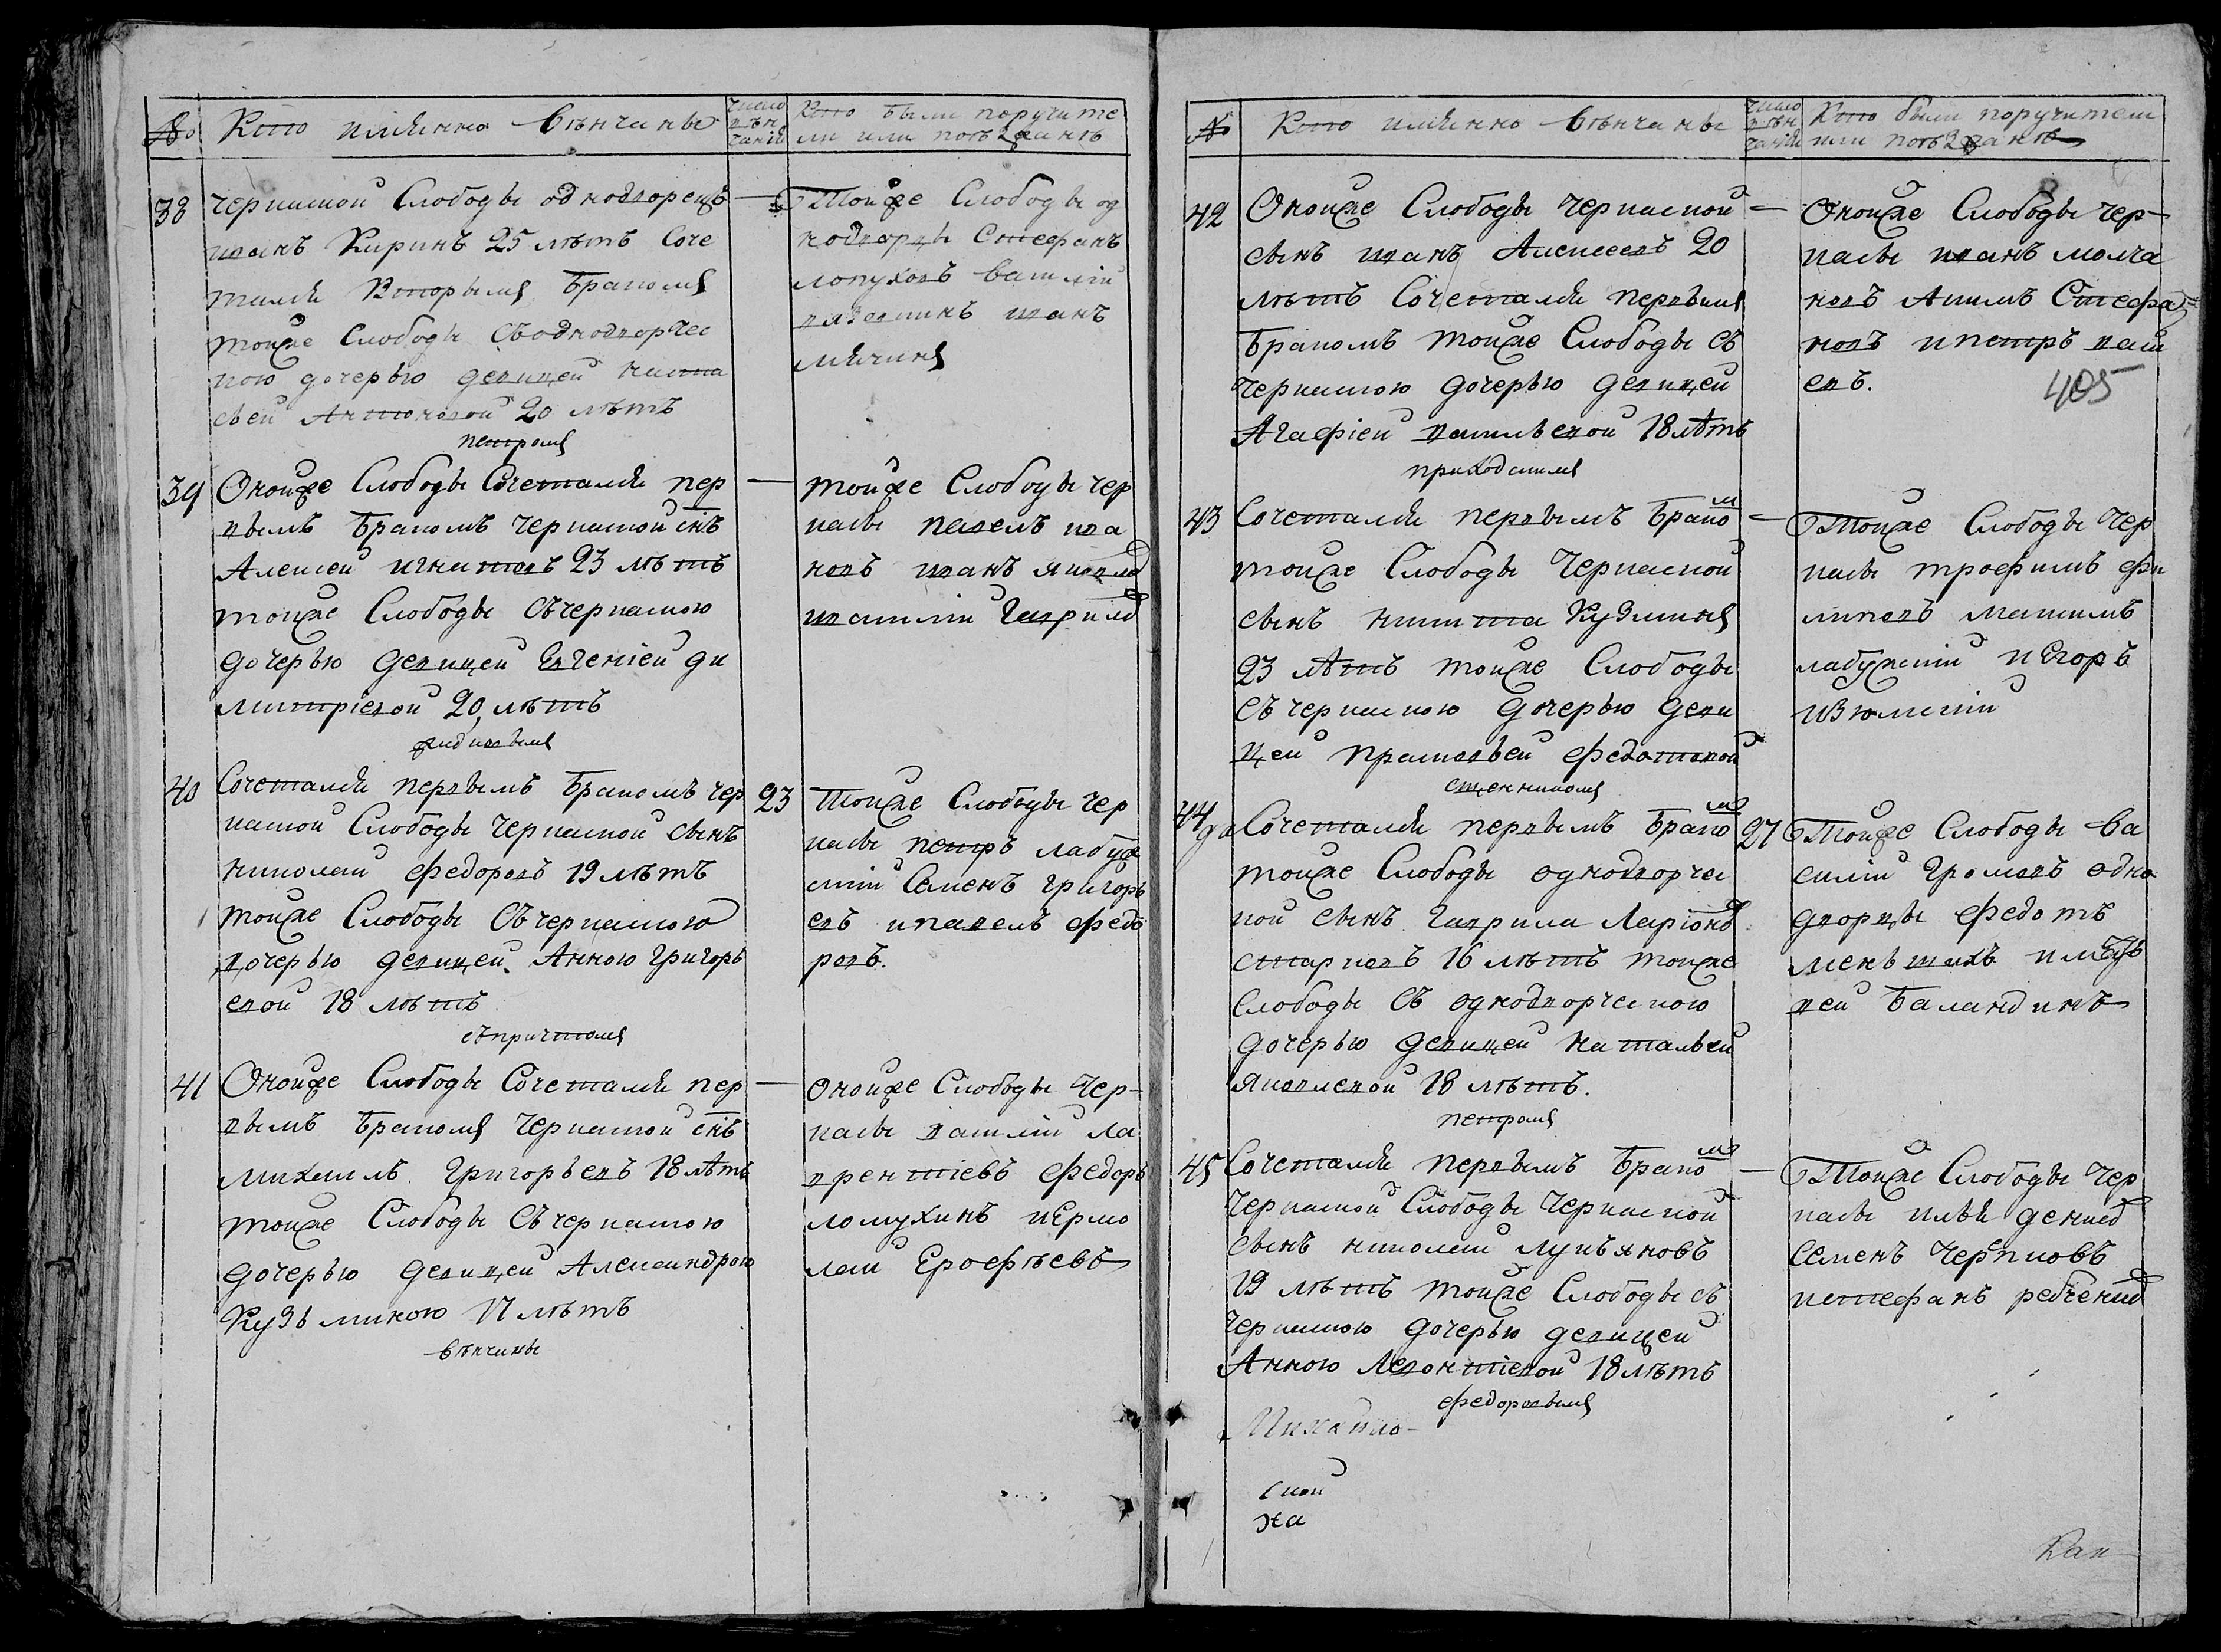 № Кто имянно вѣнчаны
число
вѣн
чаній
Кто были поручите
ли или поѣзжанѣ
38 черкаской Слободы однодворецъ —
иванъ Киринъ 25 лѣтъ Соче
тался Вторымъ бракомъ
тойже Слободы Съ однодворчес
кою дочерью девицей наста
сьей Антоновой 20 лѣтъ
петромъ
Тойже Слободы од
нодворцы Стефанъ
лопуховъ василій
иванъ
39 Онойже Слободы Сочетался пер —
вымъ бракомъ черкаской снъ
Алексей игнатовъ 23 лѣтъ
тойже Слободы Съ черкаскою
дочерью девицей Евгеніей ди
митріевой 20 лѣтъ
тойже Слободы чер
касы павелъ ива
новъ иванъ яковле
василій Гаврило
40 Сочетался первымъ бракомъ чер 23
каской Слободы Черкаской сынъ
николай федоровъ 19 лѣтъ
тойже Слободы Съ черкаскою
дочерью девицей Анною Григорь
евой 18 лѣтъ
съ причтомъ
Тойже Слободы чер
касы петръ лабуж
скій Семенъ григорь
евъ и павелъ федо
ровъ.
41 Онойже Слободы Сочетался пер —
вымъ бракомъ Черкаской снъ
михаилъ Григорьевъ 18 лѣтъ
тойже Слободы Съ черкаскою
дочерью девицей Александрою
Кузьминою 17 лѣтъ
вѣнчаны
Онойже Слободы Чер-
касы василій ла
врентіевъ федоръ
ломухинъ и Ермо
лай Ерофѣевъ
№ Кто имянно вѣнчаны
число
вѣн
чаній
Кто были поручители
или поѣзжанѣ
42 Онойже Слободы Черкаской —
сынъ иванъ Алексеевъ 20
лѣтъ Сочетался первымъ
бракомъ тойже Слободы съ
черкаскою дочерью девицей
Агафіей васильевой 18 лѣтъ
приходскимъ
Онойже Слободы чер-
касы иванъ молча
новъ Акимъ Стефа=
новъ и петръ
евъ.
405
43 Сочетался первымъ брако м —
тойже Слободы Черкаской
сынъ никита Кузминъ
23 лѣтъ тойже Слободы
Съ черкаскою дочерью деви
цей прасковьей федотовой
Тойже Слободы Чер
касы трофимъ фи
липовъ максимъ
лабужскій и Егоръ
изюмскій
44 Сочетался первымъ брако м 27
тойже Слободы однодворчес
кой сынъ Гаврила Ларіонъ
старковъ 16 лѣтъ тойже
Слободы Съ однодворческою
дочерью девицей натальей
яковлевой 18 лѣтъ.
петромъ
Тойже Слободы ва
силій Громовъ одно
дворцы федотъ
меньшихъ и мат
вей баландинъ
45 Сочетался первымъ брако м —
Черкаской Слободы Черкаской
сынъ николай лукъяновъ
19 лѣтъ тойже Слободы съ
черкаскою дочерью девицей
Анною Левонтіевой 18 лѣтъ
федоровымъ
Тойже Слободы Чер
касы илья денис
Семенъ черпковъ
истефанъ
Михайло-
ской
на